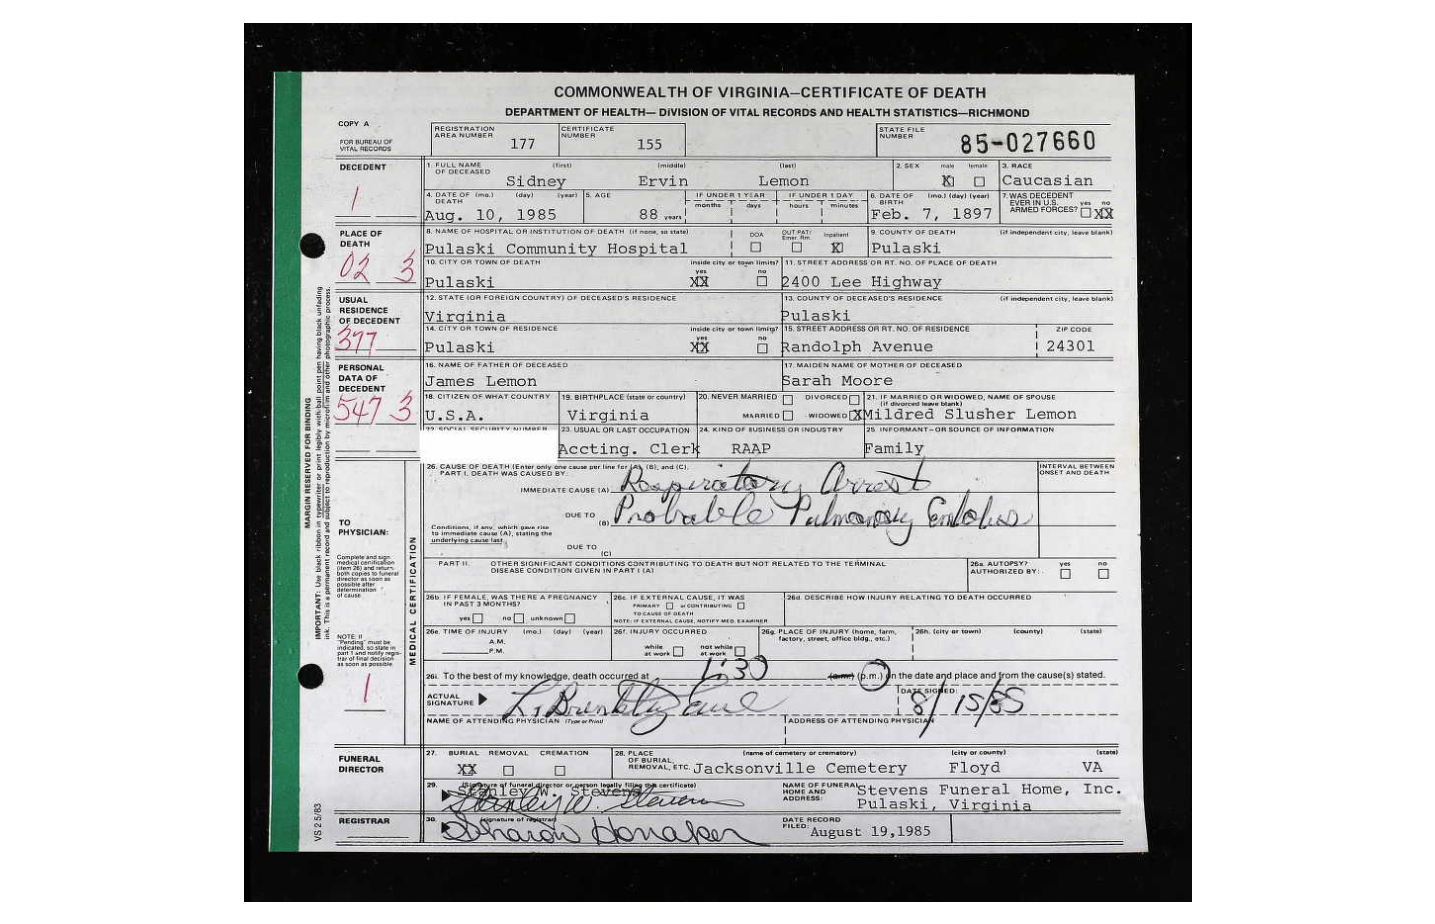 COMMONWEALTH OF VIRGINIA—CERTIFICATE OF DEATH
DEPARTMENT OF HEALTH— DIVISION OF VITAL RECORDS AND HEALTH STATISTICS—RICHMOND
COPY A
FOR BUREAU OF VITAL RECORDS
REGISTRATION AREA NUMBER 177 CERTIFICATE NUMBER 155 STATE FILE NUMBER 85-027660
DECEDENT
1
1. FULL NAME OF DECEASED (first) (middle) (last) 2. SEX male female 3. RACE
Sidney Ervin Lemon X Caucasian
4. DATE OF DEATH (mo.) (day) (year) 5. AGE IF UNDER 1 YEAR months days IF UNDER 1 DAY hours minutes 6. DATE OF BIRTH (mo.) (day) (year) 7. WAS DECEDENT EVER IN U.S. ARMED FORCES? yes no
Aug. 10, 1985 88 years Feb. 7, 1897 XX
PLACE OF DEATH
02 3
8. NAME OF HOSPITAL OR INSTITUTION OF DEATH (if none, so state) DOA OUT PAT/ Emer. Rm. Inpatient 9. COUNTY OF DEATH (if independent city, leave blank)
Pulaski Community Hospital X Pulaski
10. CITY OR TOWN OF DEATH inside city or town limits? yes no 11. STREET ADDRESS OR RT. NO. OF PLACE OF DEATH
Pulaski XX 2400 Lee Highway
USUAL RESIDENCE OF DECEDENT
377
12. STATE (OR FOREIGN COUNTRY) OF DECEASED'S RESIDENCE 13. COUNTY OF DECEASED'S RESIDENCE (if independent city, leave blank)
Virginia Pulaski
14. CITY OR TOWN OF RESIDENCE inside city or town limits? yes no 15. STREET ADDRESS OR RT. NO. OF RESIDENCE ZIP CODE
Pulaski XX Randolph Avenue 24301
PERSONAL DATA OF DECEDENT
547 3
16. NAME OF FATHER OF DECEASED 17. MAIDEN NAME OF MOTHER OF DECEASED
James Lemon Sarah Moore
18. CITIZEN OF WHAT COUNTRY 19. BIRTHPLACE (state or country) 20. NEVER MARRIED DIVORCED MARRIED WIDOWED 21. IF MARRIED OR WIDOWED, NAME OF SPOUSE (if divorced leave blank)
U.S.A. Virginia X Mildred Slusher Lemon
22. SOCIAL SECURITY NUMBER 23. USUAL OR LAST OCCUPATION 24. KIND OF BUSINESS OR INDUSTRY 25. INFORMANT—OR SOURCE OF INFORMATION
Accting. Clerk RAAP Family
MARGIN RESERVED FOR BINDING
IMPORTANT: Use black ribbon in typewriter or print legibly with ball point pen having black unfading ink. This is a permanent record and subject to reproduction by microfilm and other photographic process.
TO PHYSICIAN:
Complete and sign medical certification (item 26) and return both copies to funeral director as soon as possible after determination of cause.
NOTE: If "Pending" must be indicated, so state in part 1 and notify registrar of final decision as soon as possible
1
MEDICAL CERTIFICATION
26. CAUSE OF DEATH (Enter only one cause per line for (A), (B), and (C). INTERVAL BETWEEN ONSET AND DEATH
PART I. DEATH WAS CAUSED BY:
IMMEDIATE CAUSE (A) Respiratory Arrest
DUE TO (B) Probable Pulmonary Embolus
Conditions, if any, which gave rise to immediate cause (A), stating the underlying cause last.
DUE TO (C)
PART II. OTHER SIGNIFICANT CONDITIONS CONTRIBUTING TO DEATH BUT NOT RELATED TO THE TERMINAL DISEASE CONDITION GIVEN IN PART I (A) 26a. AUTOPSY? AUTHORIZED BY: yes no
26b. IF FEMALE, WAS THERE A PREGNANCY IN PAST 3 MONTHS? yes no unknown 26c. IF EXTERNAL CAUSE, IT WAS PRIMARY or CONTRIBUTING TO CAUSE OF DEATH NOTE: IF EXTERNAL CAUSE, NOTIFY MED. EXAMINER 26d. DESCRIBE HOW INJURY RELATING TO DEATH OCCURRED
26e. TIME OF INJURY (mo.) (day) (year) A.M. P.M. 26f. INJURY OCCURRED while at work not while at work 26g. PLACE OF INJURY (home, farm, factory, street, office bldg., etc.) 26h. (city or town) (county) (state)
26i. To the best of my knowledge, death occurred at 1:30 (a.m.) (p.m.) on the date and place and from the cause(s) stated.
ACTUAL SIGNATURE DATE SIGNED: 8/15/85
NAME OF ATTENDING PHYSICIAN (Type or Print) ADDRESS OF ATTENDING PHYSICIAN
FUNERAL DIRECTOR
27. BURIAL REMOVAL CREMATION 28. PLACE OF BURIAL, REMOVAL, ETC. (name of cemetery or crematory) (city or county) (state)
XX Jacksonville Cemetery Floyd VA
29. (Signature of funeral director or person legally filing this certificate) NAME OF FUNERAL HOME AND ADDRESS: Stevens Funeral Home, Inc.
Stanley W. Stevens Pulaski, Virginia
Stanley W. Stevens
REGISTRAR
30. (signature of registrar) DATE RECORD FILED: August 19,1985
Sharon Honaker
VS 2 5/83